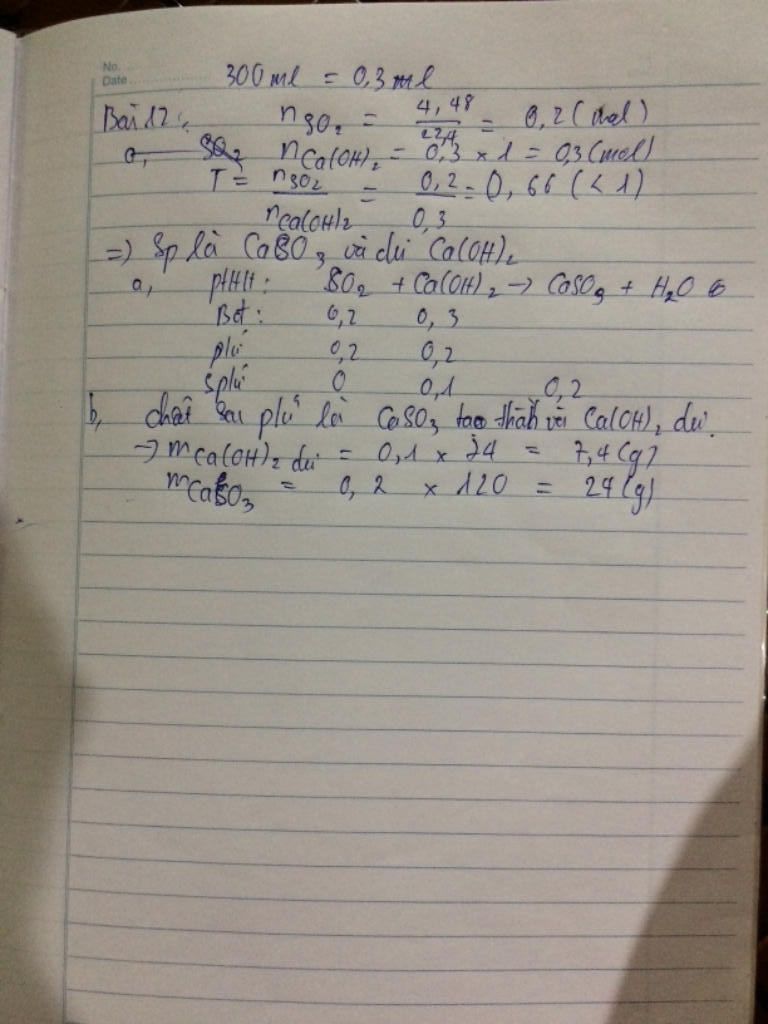 No.
Date
300ml = 0,3ml
Bài 12: nSO2 = 4,48/22,4 = 0,2 (mol)
a, SO2 nCa(OH)2 = 0,3 x 1 = 0,3 (mol)
T = nSO2/nCa(OH)2 = 0,2/0,3 = 0,66 (<1)
=) Sp là CaSO3 và dư Ca(OH)2
a, ptHH: SO2 + Ca(OH)2 → CaSO3 + H2O
Bđ: 0,2 0,3
pứ 0,2 0,2
spứ 0 0,1 0,2
b, chất sau pứ là CaSO3 tạo thành và Ca(OH)2 dư.
→ mCa(OH)2 dư = 0,1 x 74 = 7,4 (g)
mCaSO3 = 0,2 x 120 = 24 (g)